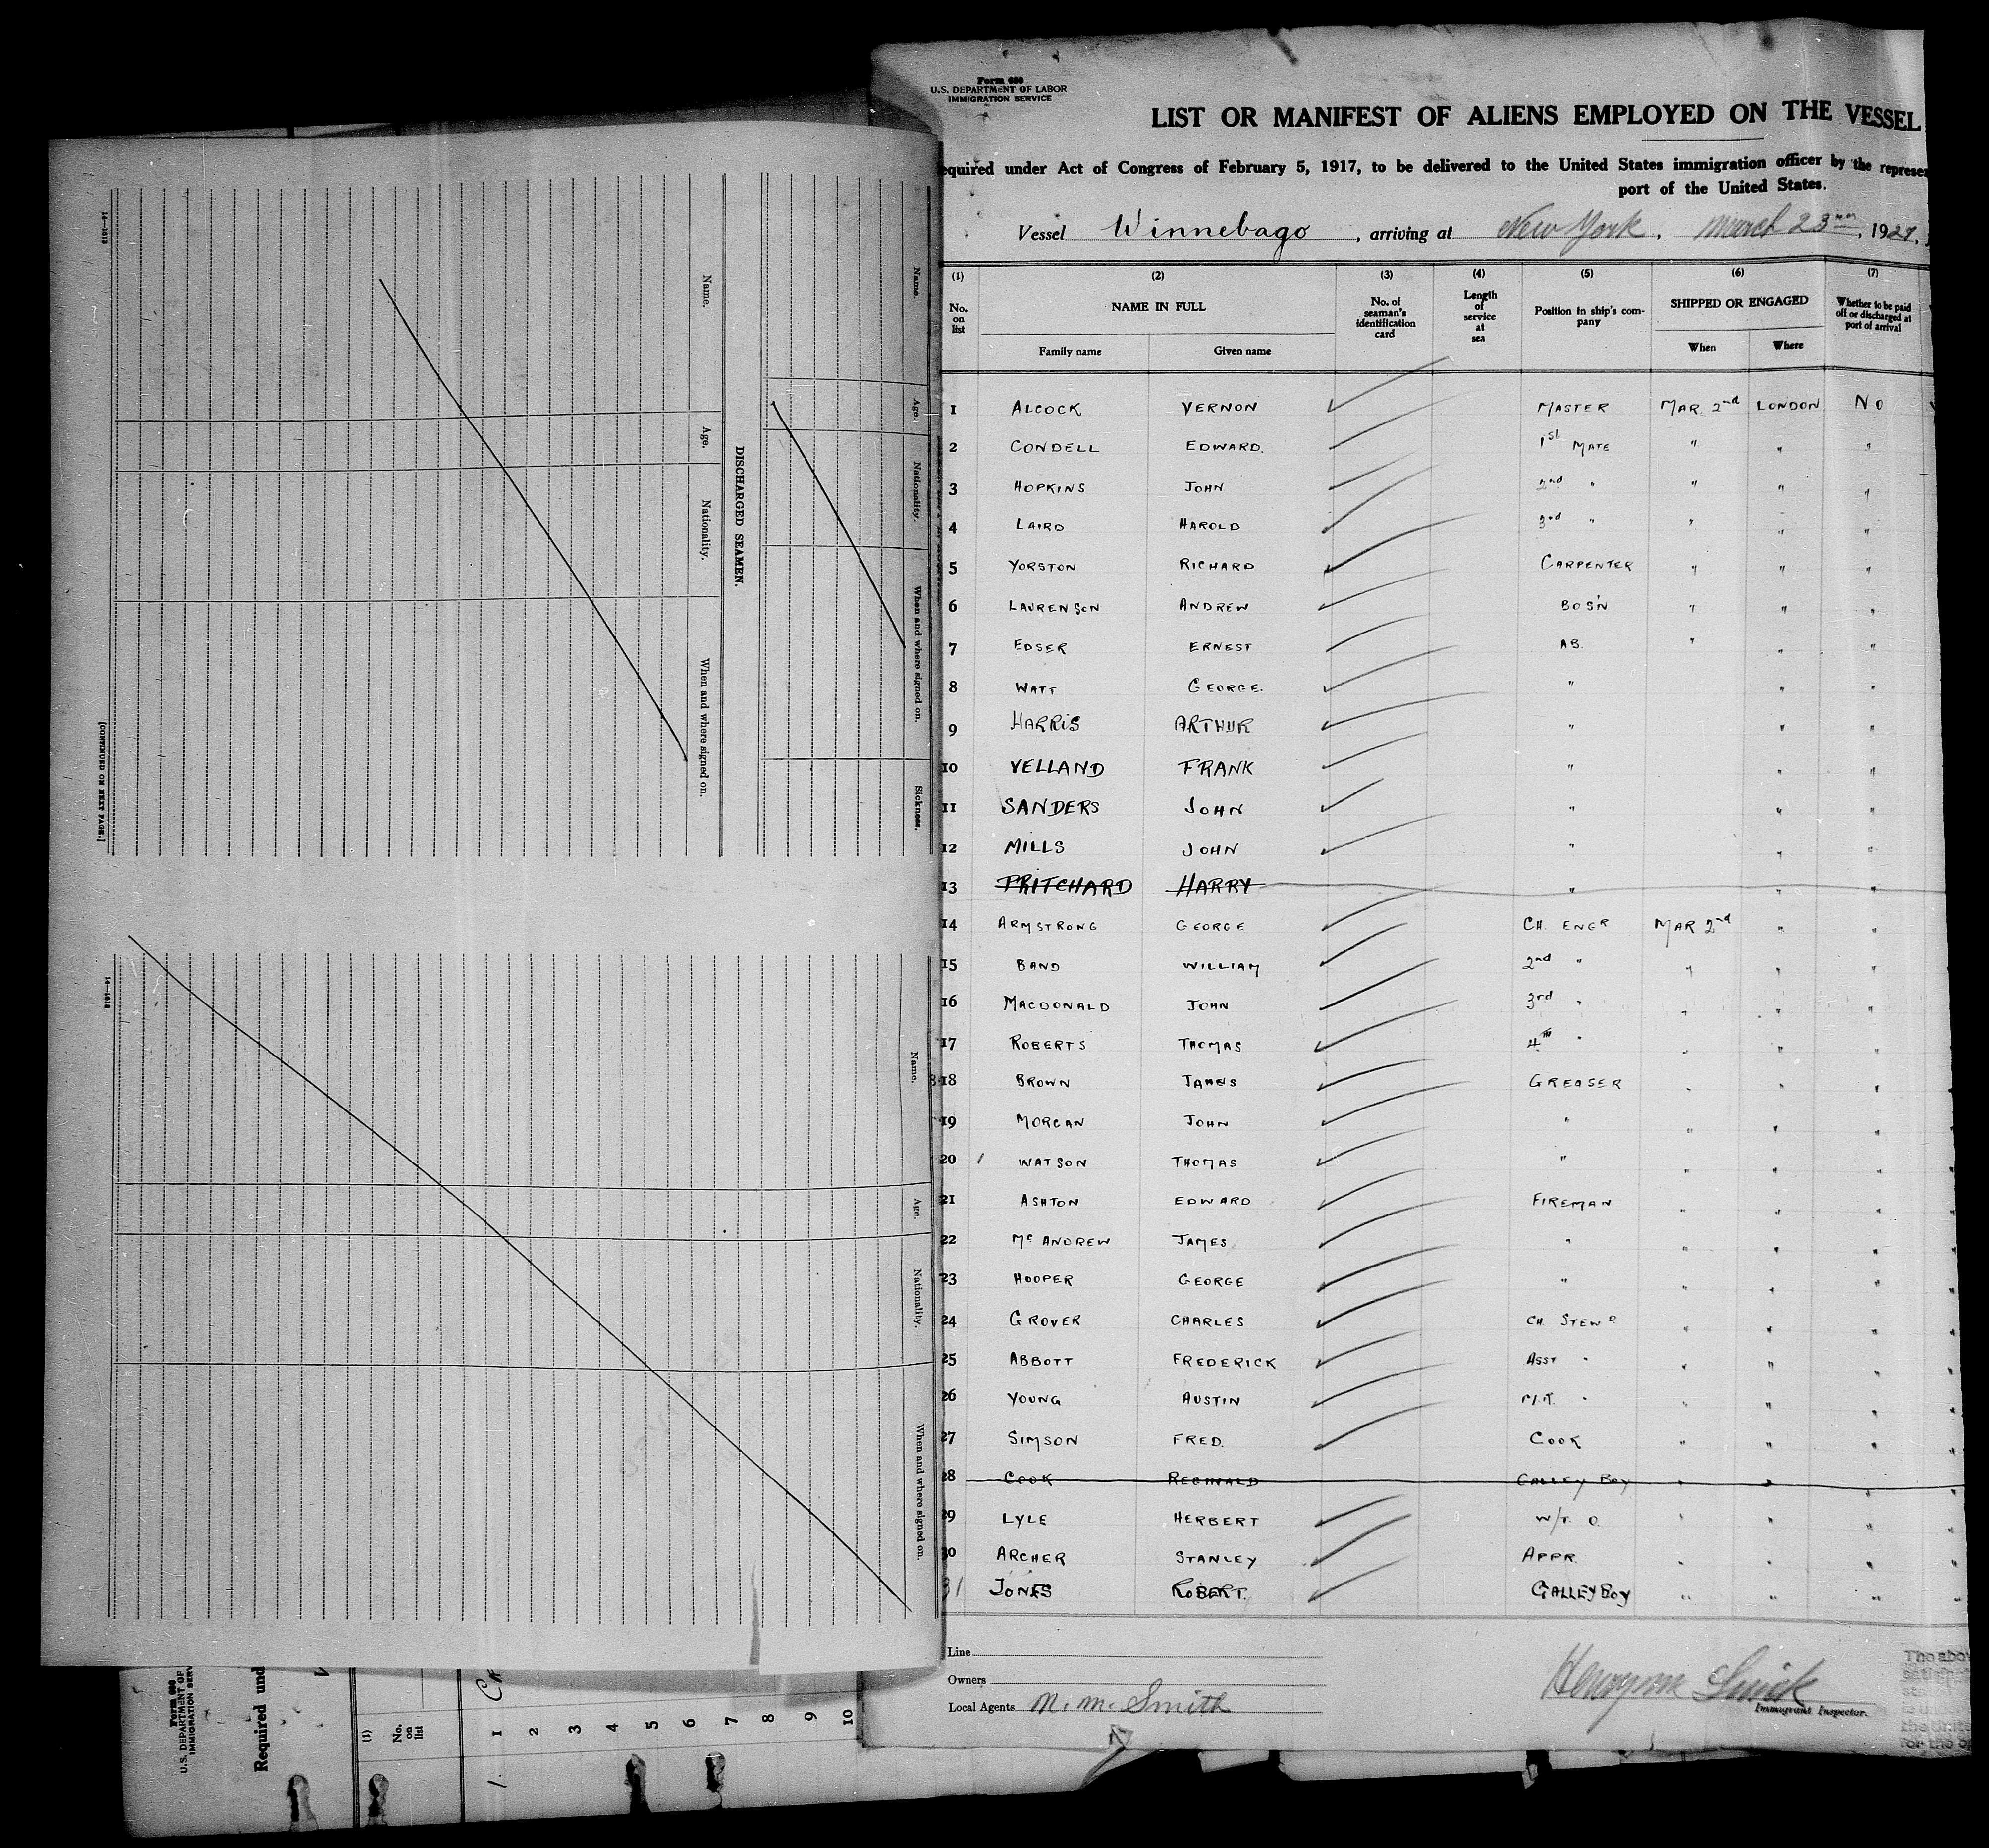 Form 680
U.S. DEPARTMENT OF LABOR
IMMIGRATION SERVICE
LIST OR MANIFEST OF ALIENS EMPLOYED ON THE VESSEL
equired under Act of Congress of February 5, 1917, to be delivered to the United States immigration officer by the represen
port of the United States.
Vessel Winnebago, arriving at New York, March 23rd, 1927,
(1) (2) (3) (4) (5) (6) (7)
No. on list NAME IN FULL No. of seaman's identification card Length of service at sea Position in ship's company SHIPPED OR ENGAGED Whether to be paid off or discharged at port of arrival
Family name Given name When Where
1 ALCOCK VERNON MASTER MAR. 2nd LONDON NO
2 CONDELL EDWARD. 1st MATE " " "
3 HOPKINS JOHN 2nd " " " "
4 LAIRD HAROLD 3rd " " " "
5 YORSTON RICHARD CARPENTER " " "
6 LAURENSON ANDREW BOS'N " " "
7 EDSER ERNEST AB. " " "
8 WATT GEORGE. " " "
9 HARRIS ARTHUR " " "
10 VELLAND FRANK " " "
11 SANDERS JOHN " " "
12 MILLS JOHN " " "
13 PRITCHARD HARRY " " "
14 ARMSTRONG GEORGE CH. ENGR MAR 2nd " "
15 BAND WILLIAM 2nd " " " "
16 MACDONALD JOHN 3rd " " " "
17 ROBERTS THOMAS 4th " " " "
18 BROWN JAMES GREASER " " "
19 MORGAN JOHN " " " "
20 WATSON THOMAS " " " "
21 ASHTON EDWARD FIREMAN " " "
22 McANDREW JAMES " " " "
23 HOOPER GEORGE " " " "
24 GROVER CHARLES CH. STEWD " " "
25 ABBOTT FREDERICK ASST " " " "
26 YOUNG AUSTIN " " " "
27 SIMSON FRED. COOK " " "
28 COOK REGINALD GALLEY BOY " " "
29 LYLE HERBERT W/T. O. " " "
30 ARCHER STANLEY APPR. " " "
31 JONES ROBERT. GALLEY BOY " " "
Line
Owners
Local Agents N. M. Smith
Immigrant Inspector.
The abov
Name. Age. Nationality. When and where signed on. Sickness.
DISCHARGED SEAMEN.
Name. Age. Nationality. When and where signed on.
14—1612 [CONTINUED ON NEXT PAGE.]
Name. Age. Nationality. When and where signed on.
14—1612
Form 680
U.S. DEPARTMENT OF
IMMIGRATION SERV
Required und
(1)
No. on list
1
2
3
4
5
6
7
8
9
10